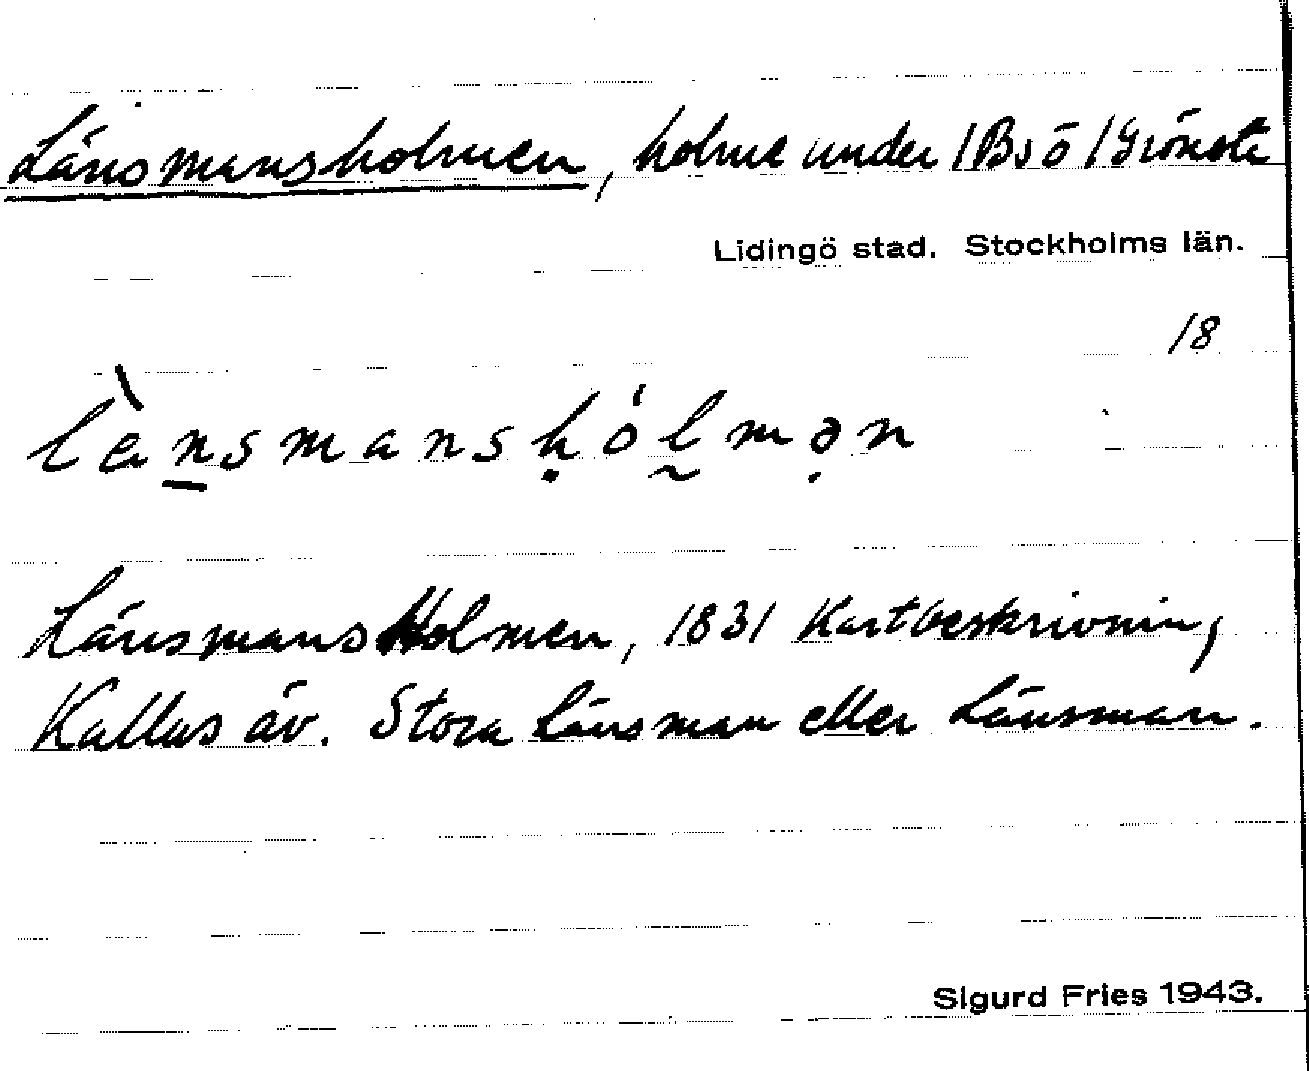 Länsmansholmen, holme under /Bsö/Grönsta
Lidingö stad. Stockholms län.
18
lènsmanshólmən
LänsmansHolmen, 1831 Kartbeskrivning
Kallas äv. Stora Länsman eller Länsman.
Sigurd Fries 1943.